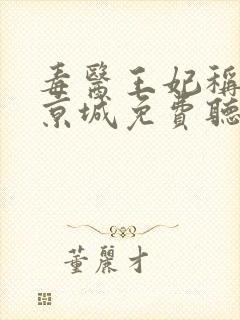 毒醫王妃稱
京城免費聽
董麗才